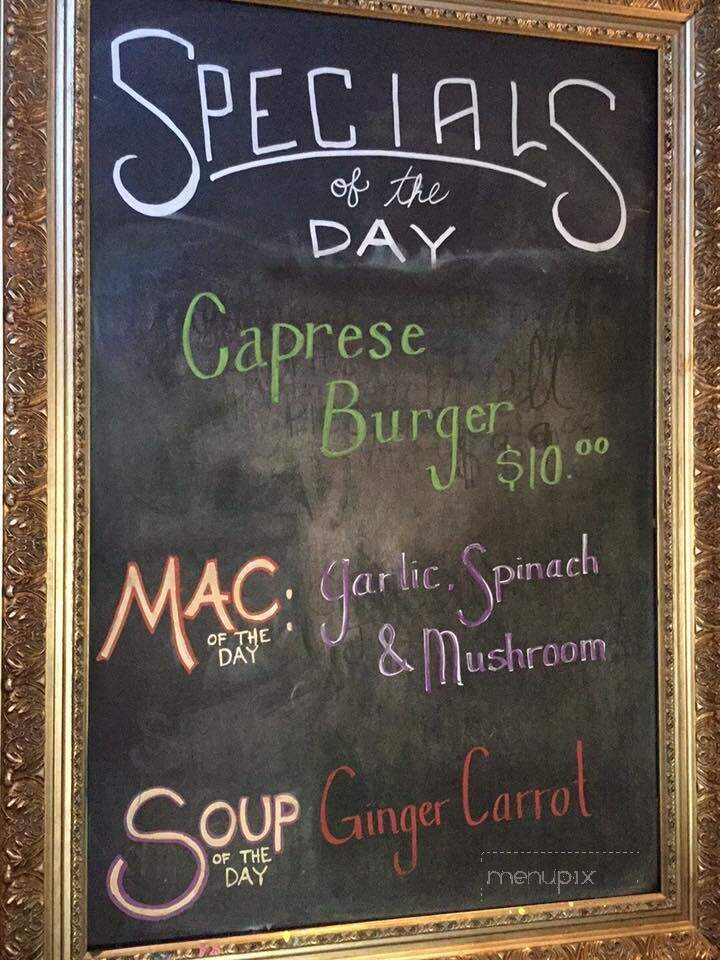 SPECIALS
of the
DAY
Caprese
Burger
$10.00
MAC: Garlic, Spinach
OF THE
DAY
& Mushroom
SOUP Ginger Carrot
OF THE
DAY
menupix